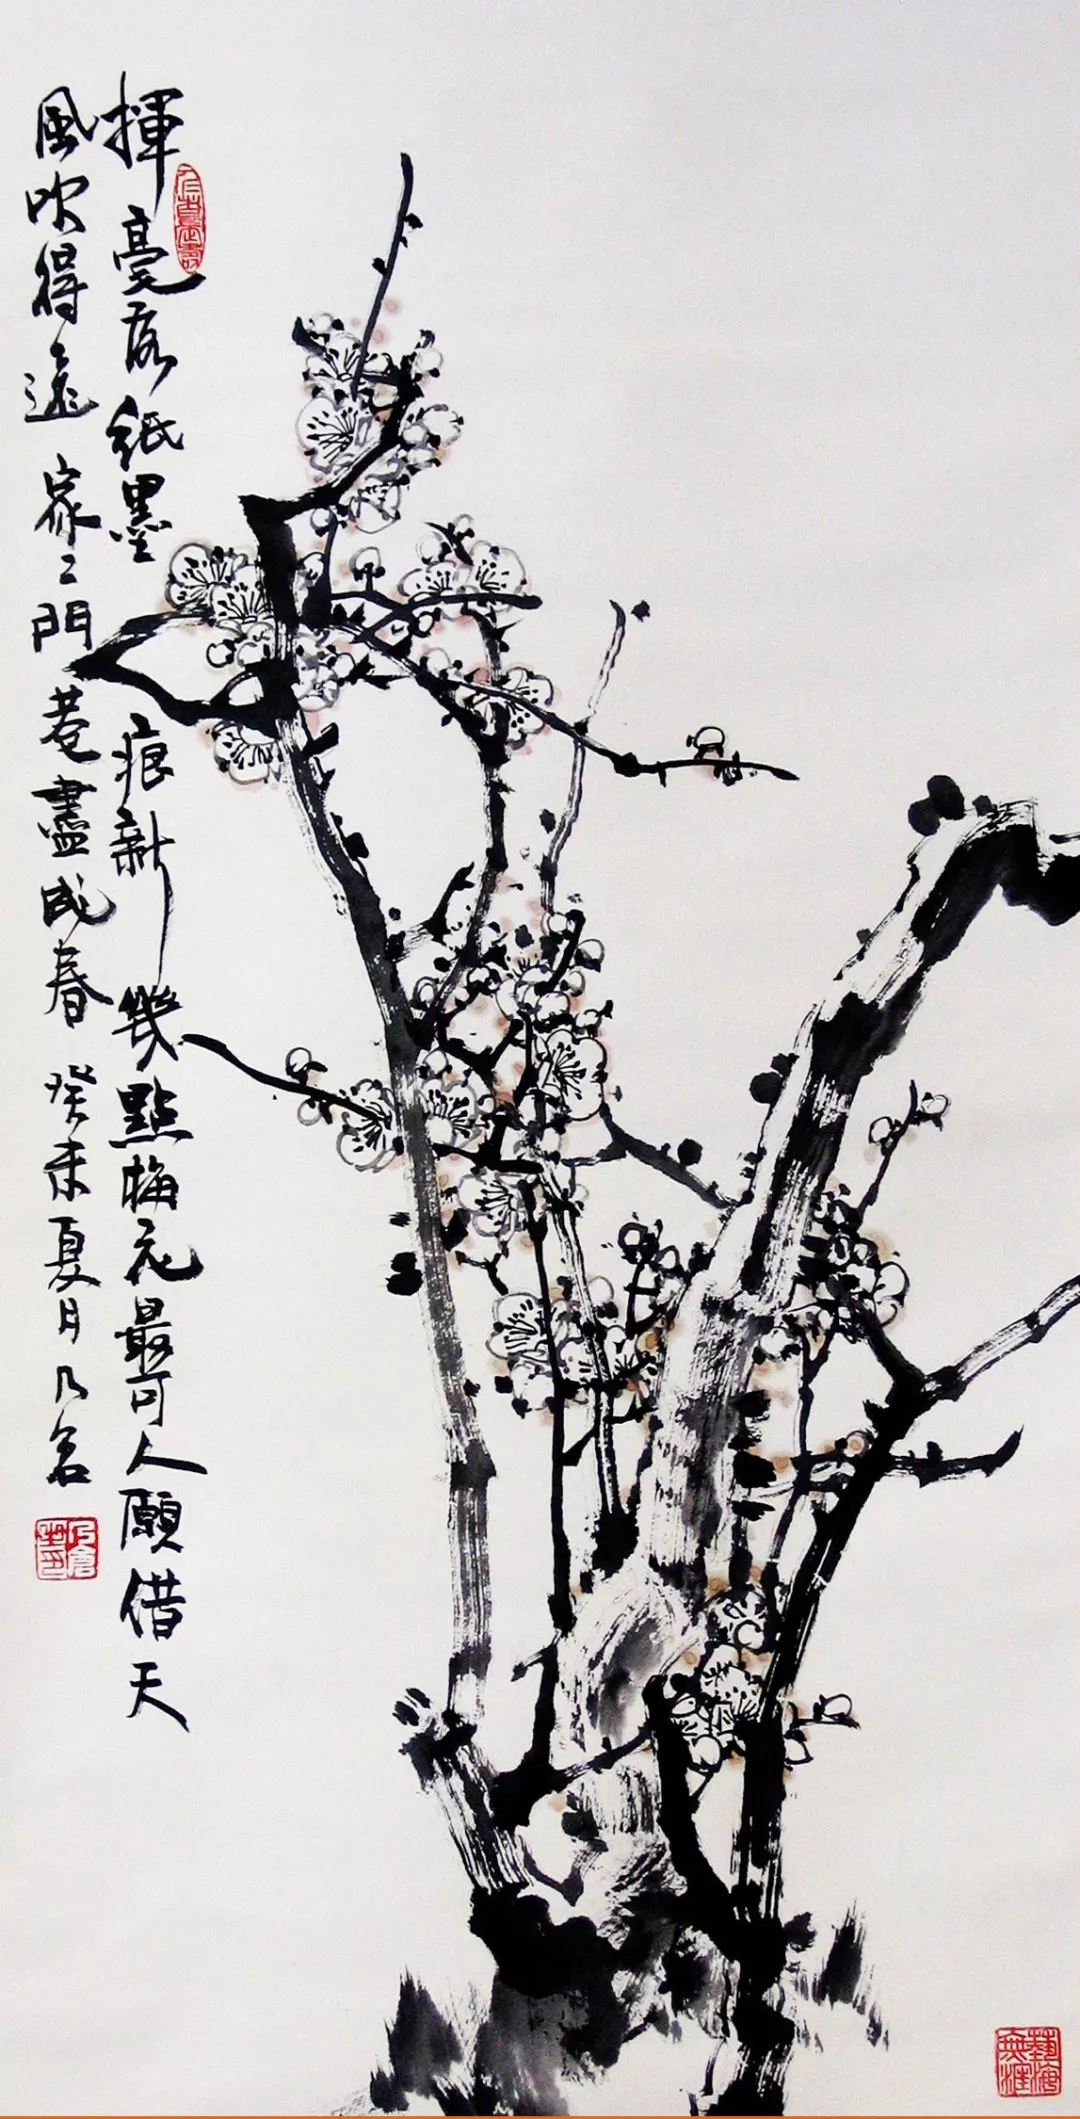 揮毫落紙墨痕新幾點梅花最可人願借天
風吹得遠家二門巷盡成春癸未夏月乃
藝海無涯